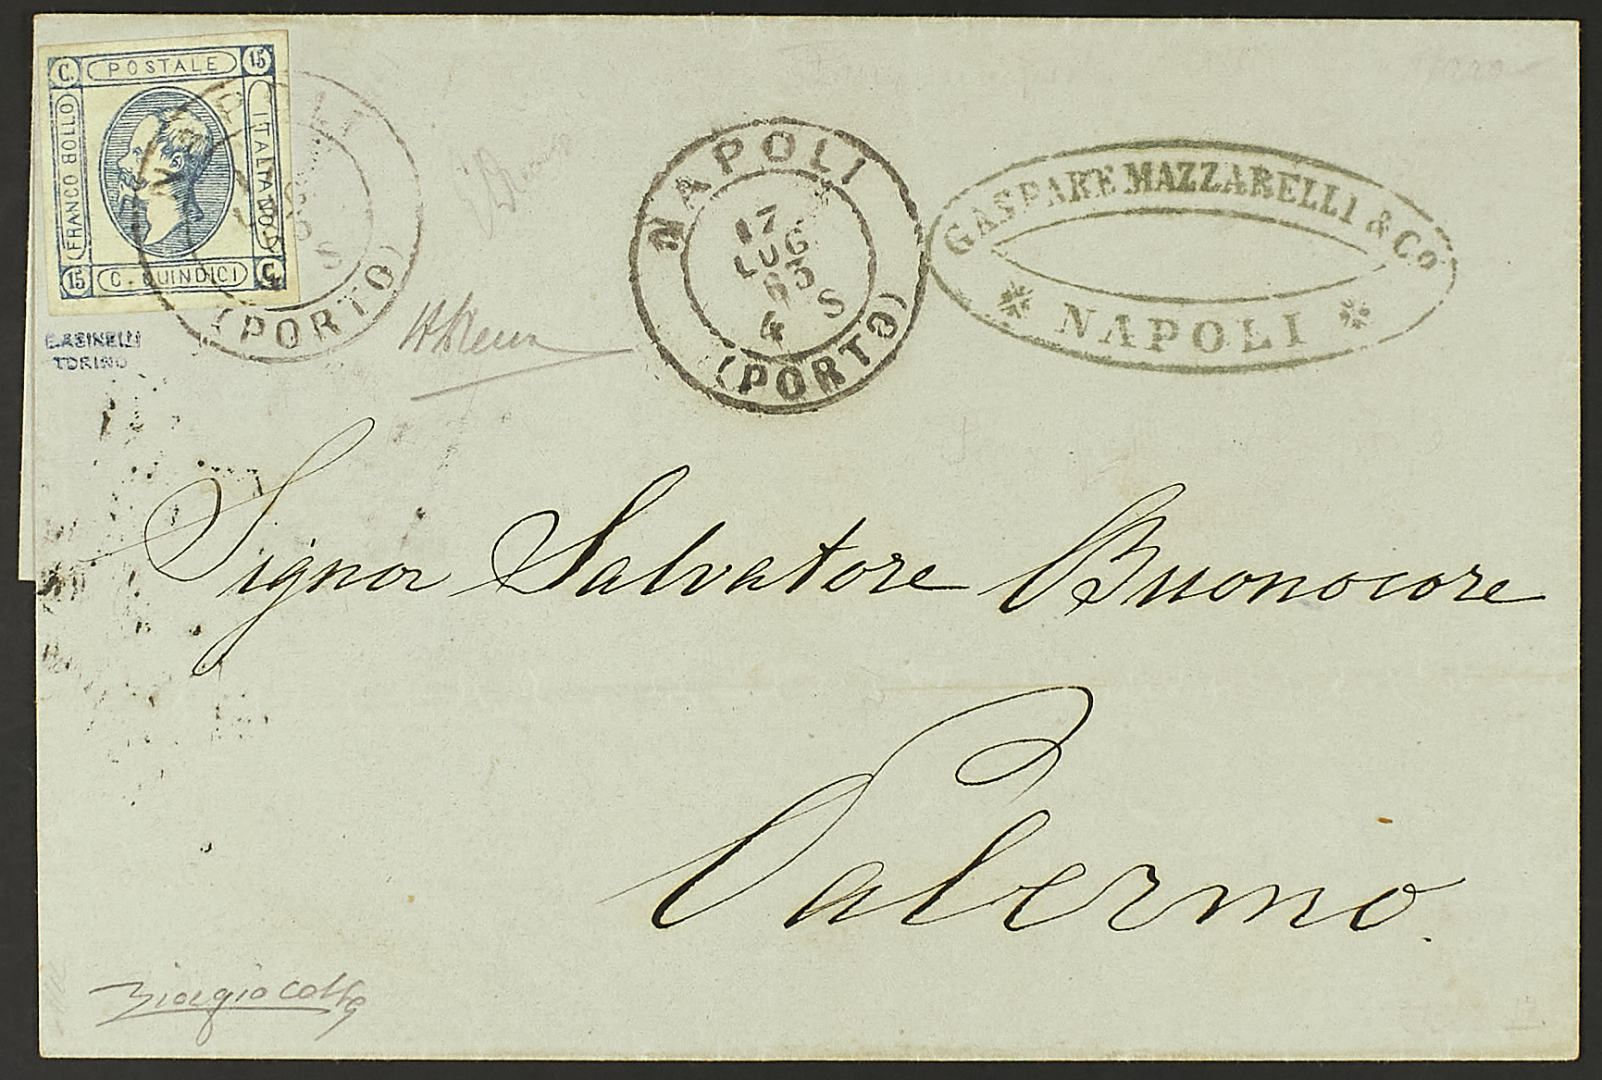 C. POSTALE 15
FRANCO BOLLO
ITALIANO
15 C. QUINDICI C.
(PORTO)
G. ASINELLI
TORINO
NAPOLI
17
LUG
63
4 S
(PORTO)
GASPARE MAZZARELLI & Co
NAPOLI
Signor Salvatore Buonocore
Palermo.
Giorgio Colla